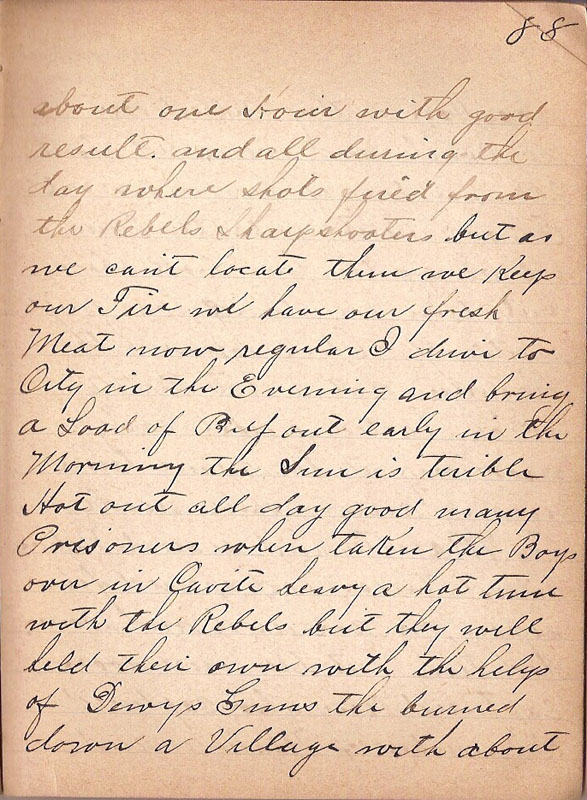 88
about one Hour with good
result. and all during the
day where shots fired from
the Rebels Sharpshooters but as
we cant locate them we Keep
our Fire we have our fresh
Meat now regular I drive to
City in the Evening and bring
a Load of Beef out early in the
Morning the Sun is terible
Hot out all day good many
Prisoners wher taken the Boys
over in Cavite heavy a hot time
with the Rebels but they will
held their own with the help
of Dewys Guns the burned
down a Village with about